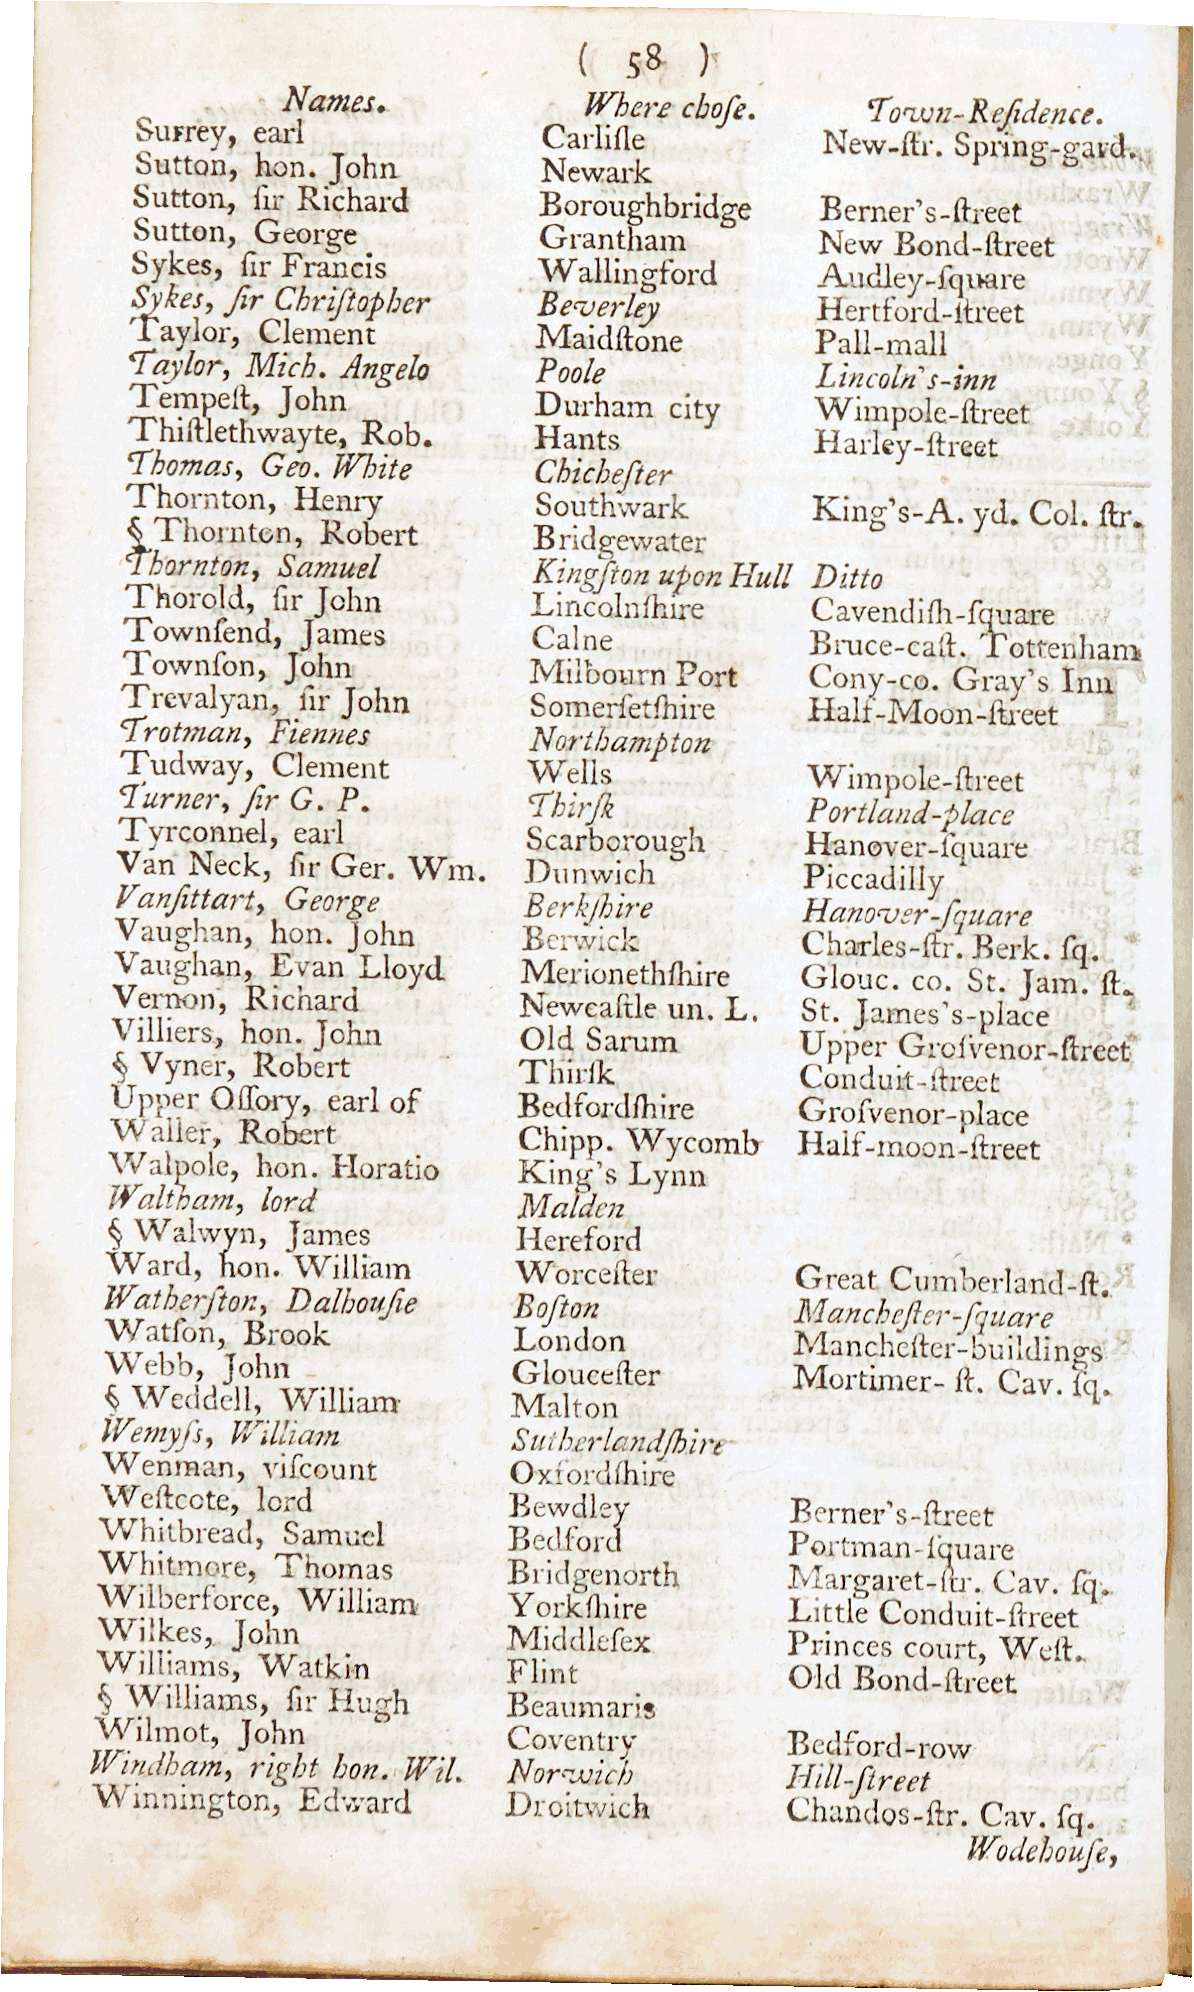 ( 58 )
Names. Where choſe. Town-Reſidence.
Surrey, earl Carliſle New-ſtr. Spring-gard.
Sutton, hon. John Newark
Sutton, ſir Richard Boroughbridge Berner's-ſtreet
Sutton, George Grantham New Bond-ſtreet
Sykes, ſir Francis Wallingford Audley-ſquare
Sykes, ſir Chriſtopher Beverley Hertford-ſtreet
Taylor, Clement Maidſtone Pall-mall
Taylor, Mich. Angelo Poole Lincoln's-inn
Tempeſt, John Durham city Wimpole-ſtreet
Thiſtlethwayte, Rob. Hants Harley-ſtreet
Thomas, Geo. White Chicheſter
Thornton, Henry Southwark King's-A. yd. Col. ſtr.
§ Thornton, Robert Bridgewater
Thornton, Samuel Kingſton upon Hull Ditto
Thorold, ſir John Lincolnſhire Cavendiſh-ſquare
Townſend, James Calne Bruce-caſt. Tottenham
Townſon, John Milbourn Port Cony-co. Gray's Inn
Trevalyan, ſir John Somerſetſhire Half-Moon-ſtreet
Trotman, Fiennes Northampton
Tudway, Clement Wells Wimpole-ſtreet
Turner, ſir G. P. Thirſk Portland-place
Tyrconnel, earl Scarborough Hanover-ſquare
Van Neck, ſir Ger. Wm. Dunwich Piccadilly
Vanſittart, George Berkſhire Hanover-ſquare
Vaughan, hon. John Berwick Charles-ſtr. Berk. ſq.
Vaughan, Evan Lloyd Merionethſhire Glouc. co. St. Jam. ſt.
Vernon, Richard Newcaſtle un. L. St. James's-place
Villiers, hon. John Old Sarum Upper Groſvenor-ſtreet
§ Vyner, Robert Thirſk Conduit-ſtreet
Upper Oſſory, earl of Bedfordſhire Groſvenor-place
Waller, Robert Chipp. Wycomb Half-moon-ſtreet
Walpole, hon. Horatio King's Lynn
Waltham, lord Malden
§ Walwyn, James Hereford
Ward, hon. William Worceſter Great Cumberland-ſt.
Watherſton, Dalhouſie Boſton Mancheſter-ſquare
Watſon, Brook London Mancheſter-buildings
Webb, John Glouceſter Mortimer- ſt. Cav. ſq.
§ Weddell, William Malton
Wemyſs, William Sutherlandſhire
Wenman, viſcount Oxfordſhire
Weſtcote, lord Bewdley Berner's-ſtreet
Whitbread, Samuel Bedford Portman-ſquare
Whitmore, Thomas Bridgenorth Margaret-ſtr. Cav. ſq.
Wilberforce, William Yorkſhire Little Conduit-ſtreet
Wilkes, John Middleſex Princes court, Weſt.
Williams, Watkin Flint Old Bond-ſtreet
§ Williams, ſir Hugh Beaumaris
Wilmot, John Coventry Bedford-row
Windham, right hon. Wil. Norwich Hill-ſtreet
Winnington, Edward Droitwich Chandos-ſtr. Cav. ſq.
Wodehouſe,